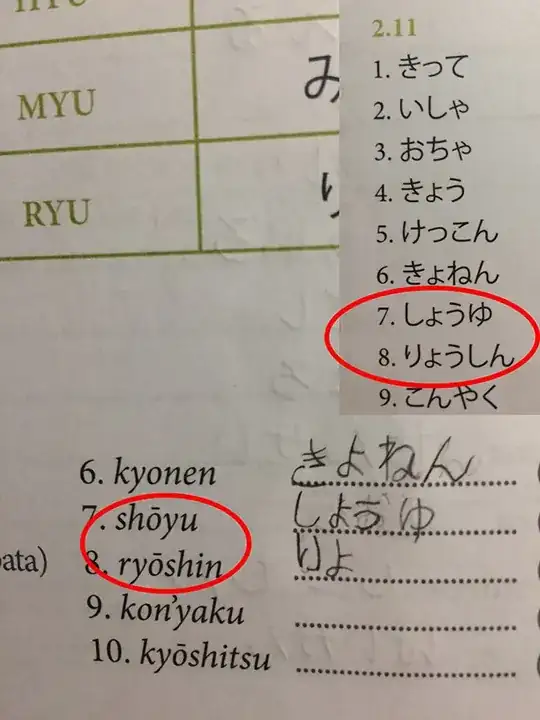 MYU み
RYU り
2.11
1. きって
2. いしゃ
3. おちゃ
4. きょう
5. けっこん
6. きょねん
7. しょうゆ
8. りょうしん
9. こんやく
6. kyonen きよねん
7. shōyu しようゆ
ata) 8. ryōshin りよ
9. kon'yaku
10. kyōshitsu